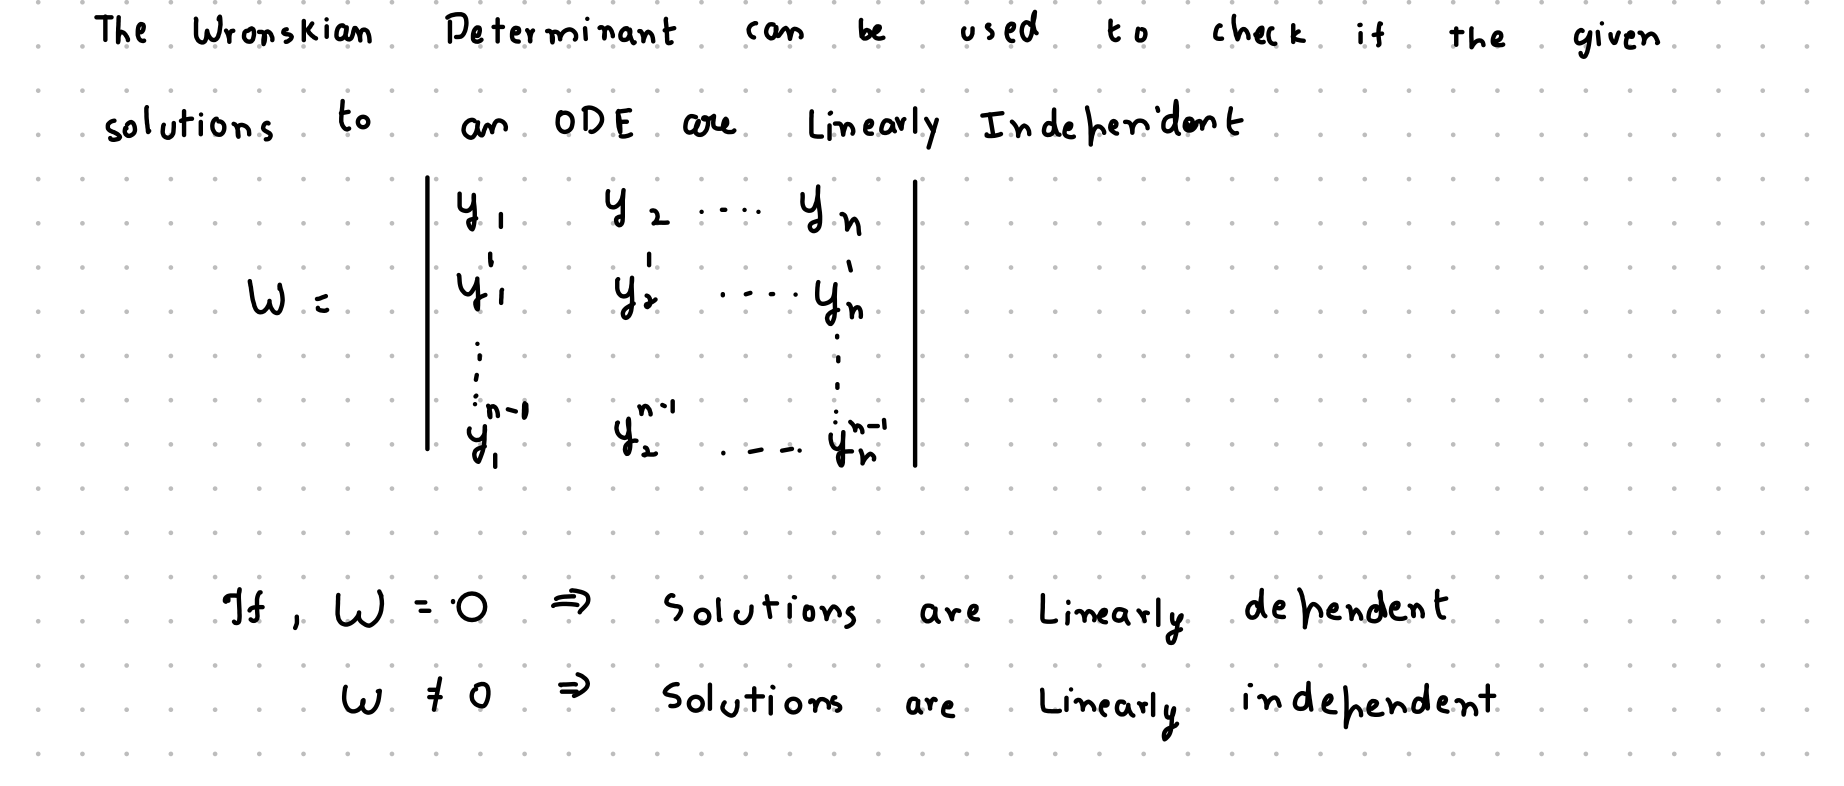 The Wronskian Determinant can be used to check if the given
solutions to an ODE are Linearly Independent
y₁ y₂ .... yₙ
W = y₁' y₂' .... yₙ'
y₁ⁿ⁻¹ y₂ⁿ⁻¹ .... yₙⁿ⁻¹
If, W = 0 ⇒ Solutions are Linearly dependent
W ≠ 0 ⇒ Solutions are Linearly independent